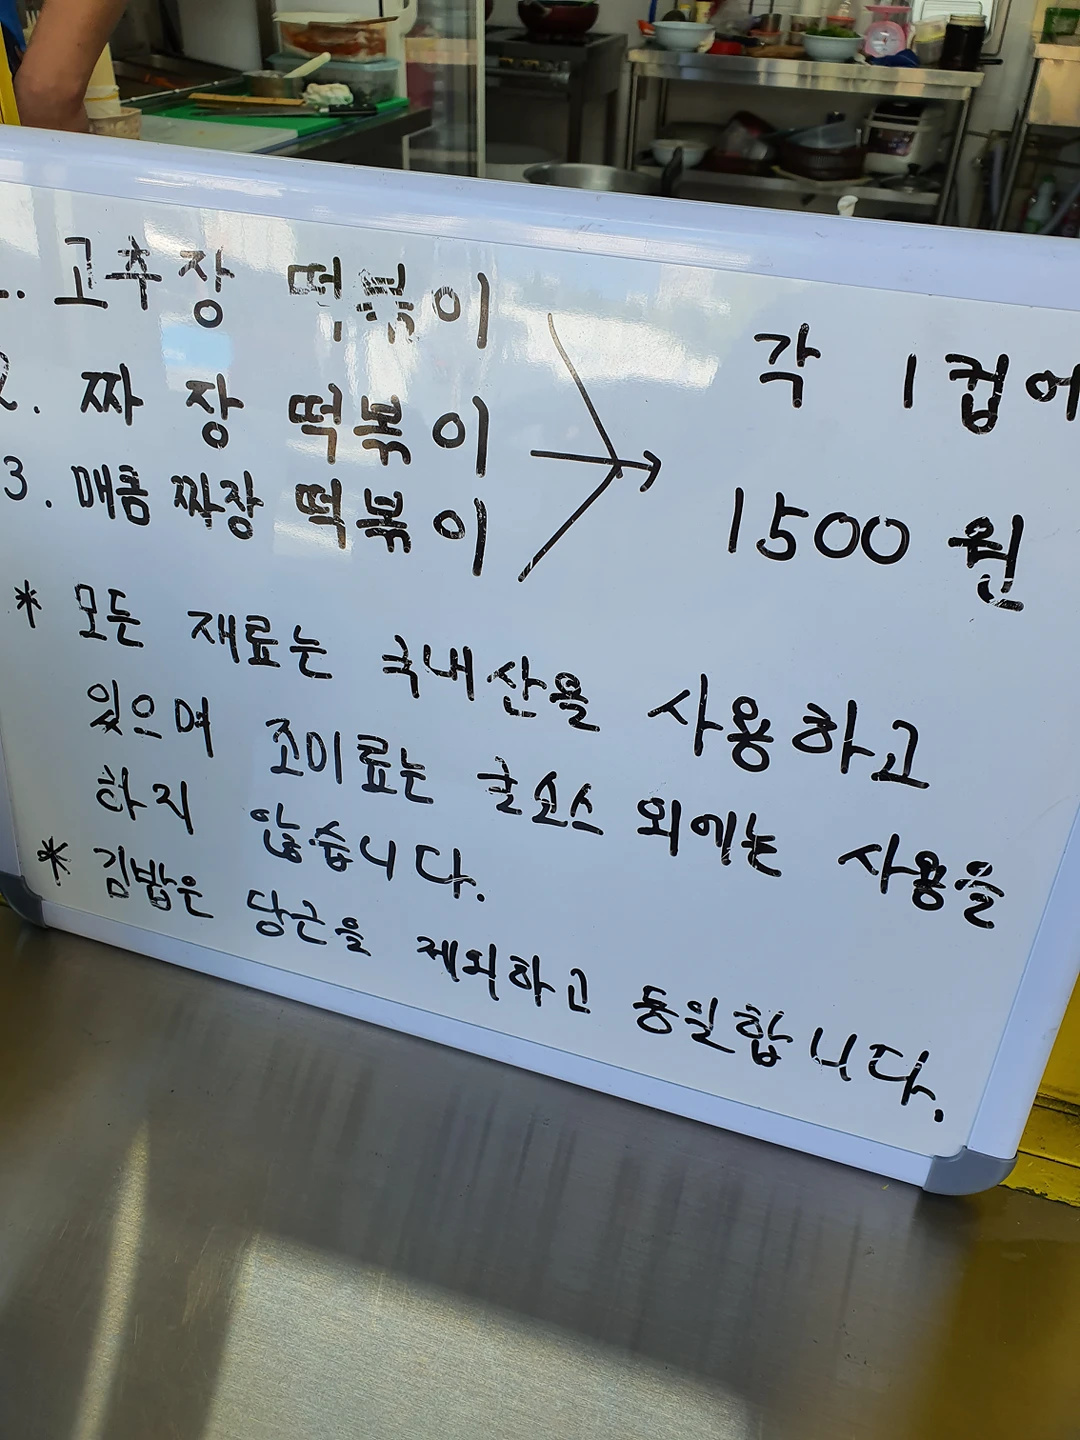 1. 고추장 떡볶이
2. 짜장 떡볶이
3. 매콤짜장 떡볶이
각 1컵에
1500원
* 모든 재료는 국내산을 사용하고
있으며 조미료는 굴소스 외에는 사용을
하지 않습니다.
* 김밥은 당근을 제외하고 동일합니다.